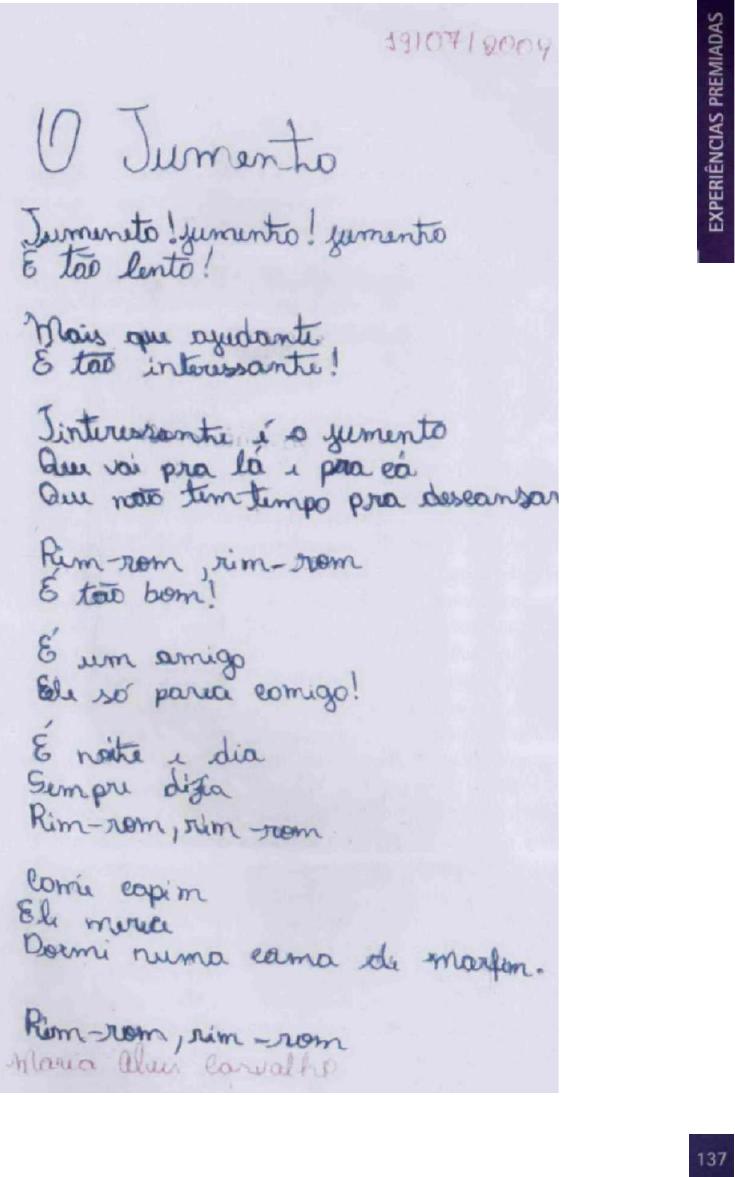 19/07/2004
O Jumento
Jumineto! jumento! jumento
É tão lento!
Mais que ajudante
É tão interessante!
Jinteressante é o jumento
Que vai pra lá e pra cá
Que não tem tempo pra descansar
Rim-rom, rim-rom
É tão bom!
É um amigo
Ele só parea comigo!
É noite e dia
Sempre dizia
Rim-rom, rim-rom
Come capim
Ele merece
Dormi numa cama de marfim.
Rim-rom, rim-rom
Maria Alves Carvalho
EXPERIÊNCIAS PREMIADAS
137